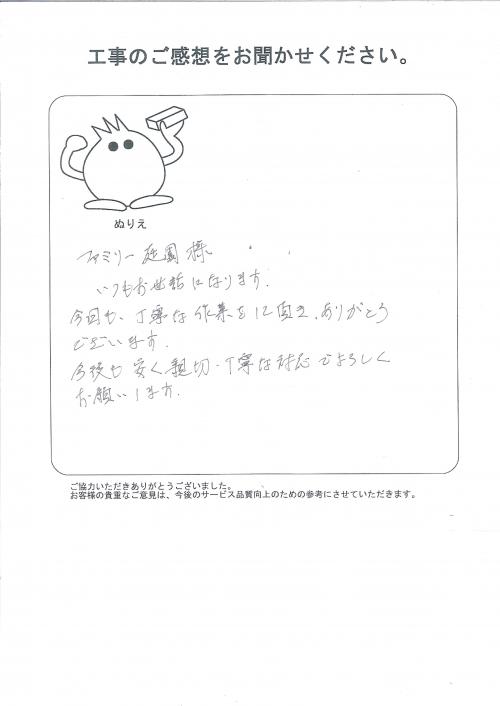 工事のご感想をお聞かせください。
ぬりえ
ファミリー庭園 様
いつもお世話になります。
今回も、丁寧な作業をして頂き、ありがとう
ございます。
今後も安く親切・丁寧な対応でよろしく
お願いします。
ご協力いただきありがとうございました。
お客様の貴重なご意見は、今後のサービス品質向上のための参考にさせていただきます。